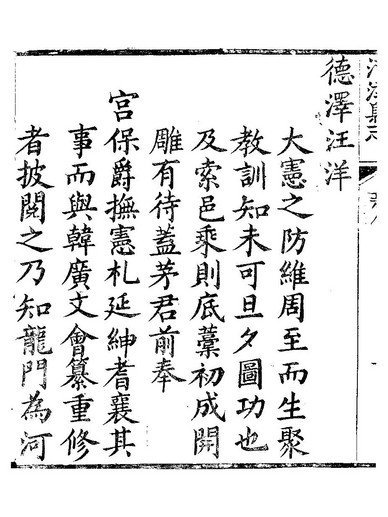 德澤汪洋
大憲之防維周至而生聚
教訓知未可旦夕圖功也
及索邑乘則底藁初成開
雕有待蓋茅君前奉
宮保爵撫憲札延紳耆襄其
事而與韓廣文會纂重修
者披閱之乃知龍門為河